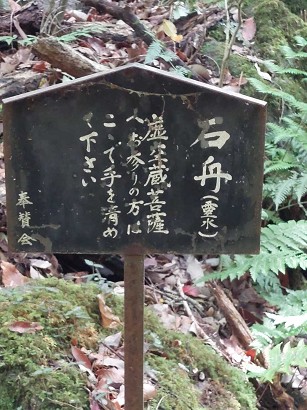 石舟(霊水)
虚空蔵菩薩
へお参りの方は
こゝで手を清め
て下さい
奉賛会